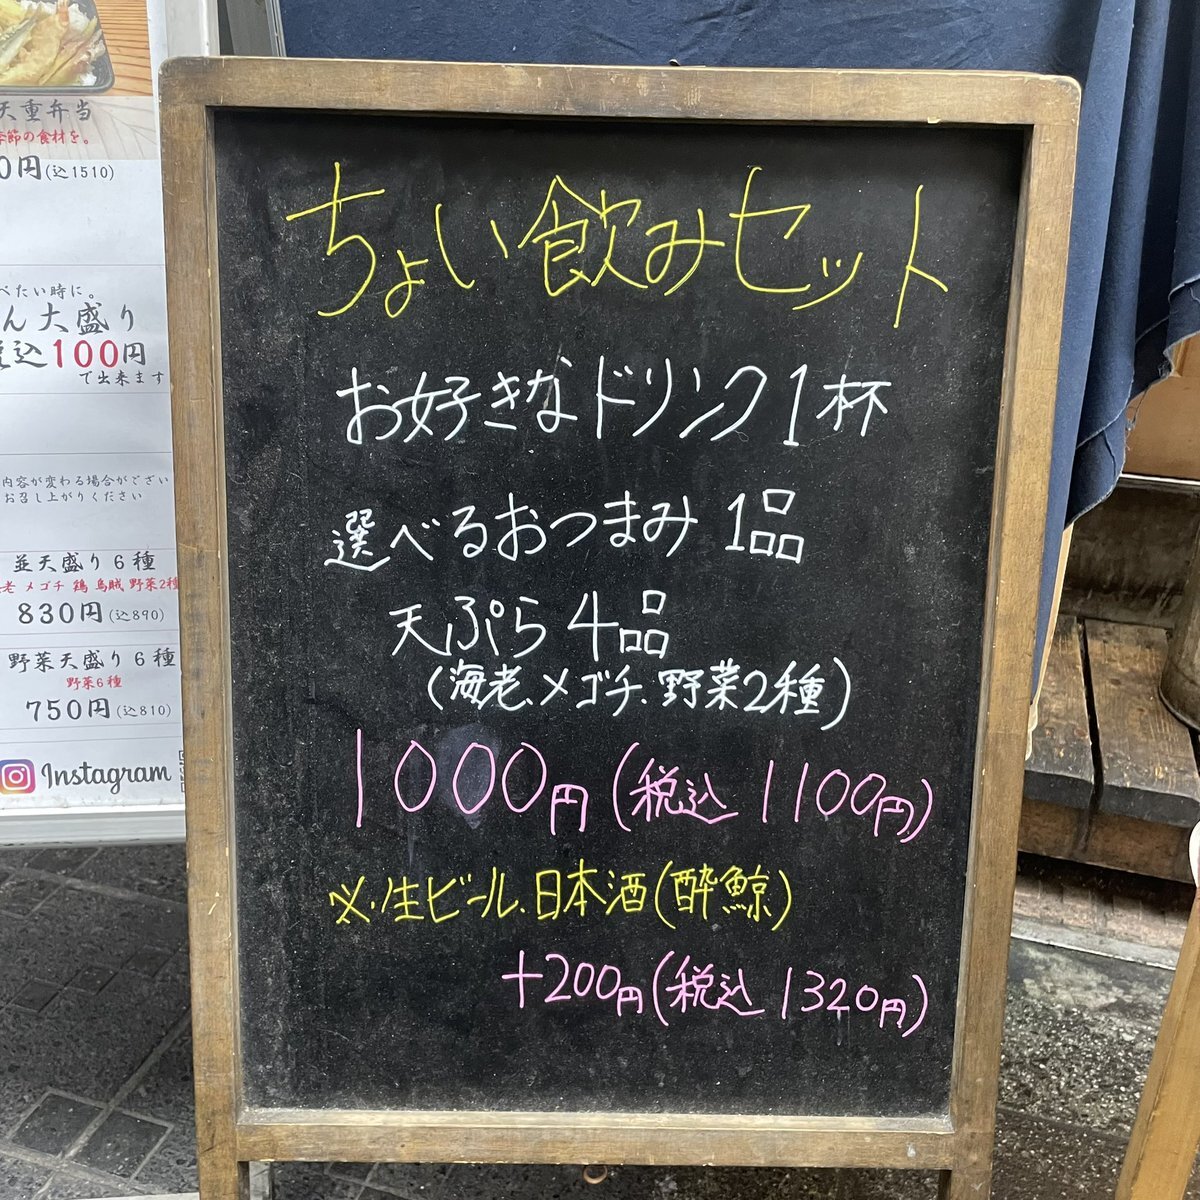 天重弁当
季節の食材を。
0円(込1510)
べたい時に。
ん大盛り
税込100円
で出来ます
内容が変わる場合がござい
お召し上がりください
並天盛り6種
老 メゴチ 鶏 烏賊 野菜2種
830円(込890)
野菜天盛り6種
野菜6種
750円(込810)
Instagram
ちょい飲みセット
お好きなドリンク1杯
選べるおつまみ 1品
天ぷら 4品
(海老、メゴチ、野菜2種)
1000円(税込 1100円)
※・生ビール、日本酒(酔鯨)
+200円(税込 1320円)